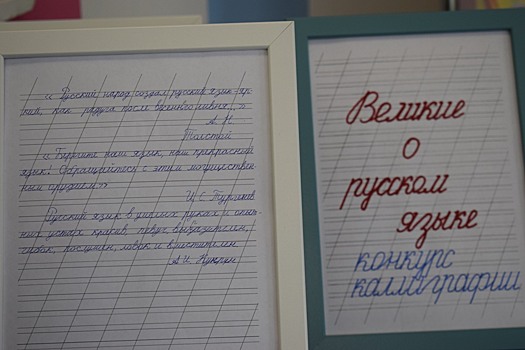 « Русский народ создал русский язык яр-
кий, как радуга после весеннего ливня, »
А. Н.
Толстой
« Берегите наш язык, наш прекрасный
язык! Обращайтесь с этим могуществен-
ным орудием »
И. С. Тургенев
Русский язык в умелых руках и опыт-
ных устах красив, певуч, выразителен,
гибок, послушен, ловок и вместителен.
А. И. Куприн
Великие
о
русском
языке
конкурс
каллиграфии